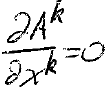 ∂A^k/∂x^k=0